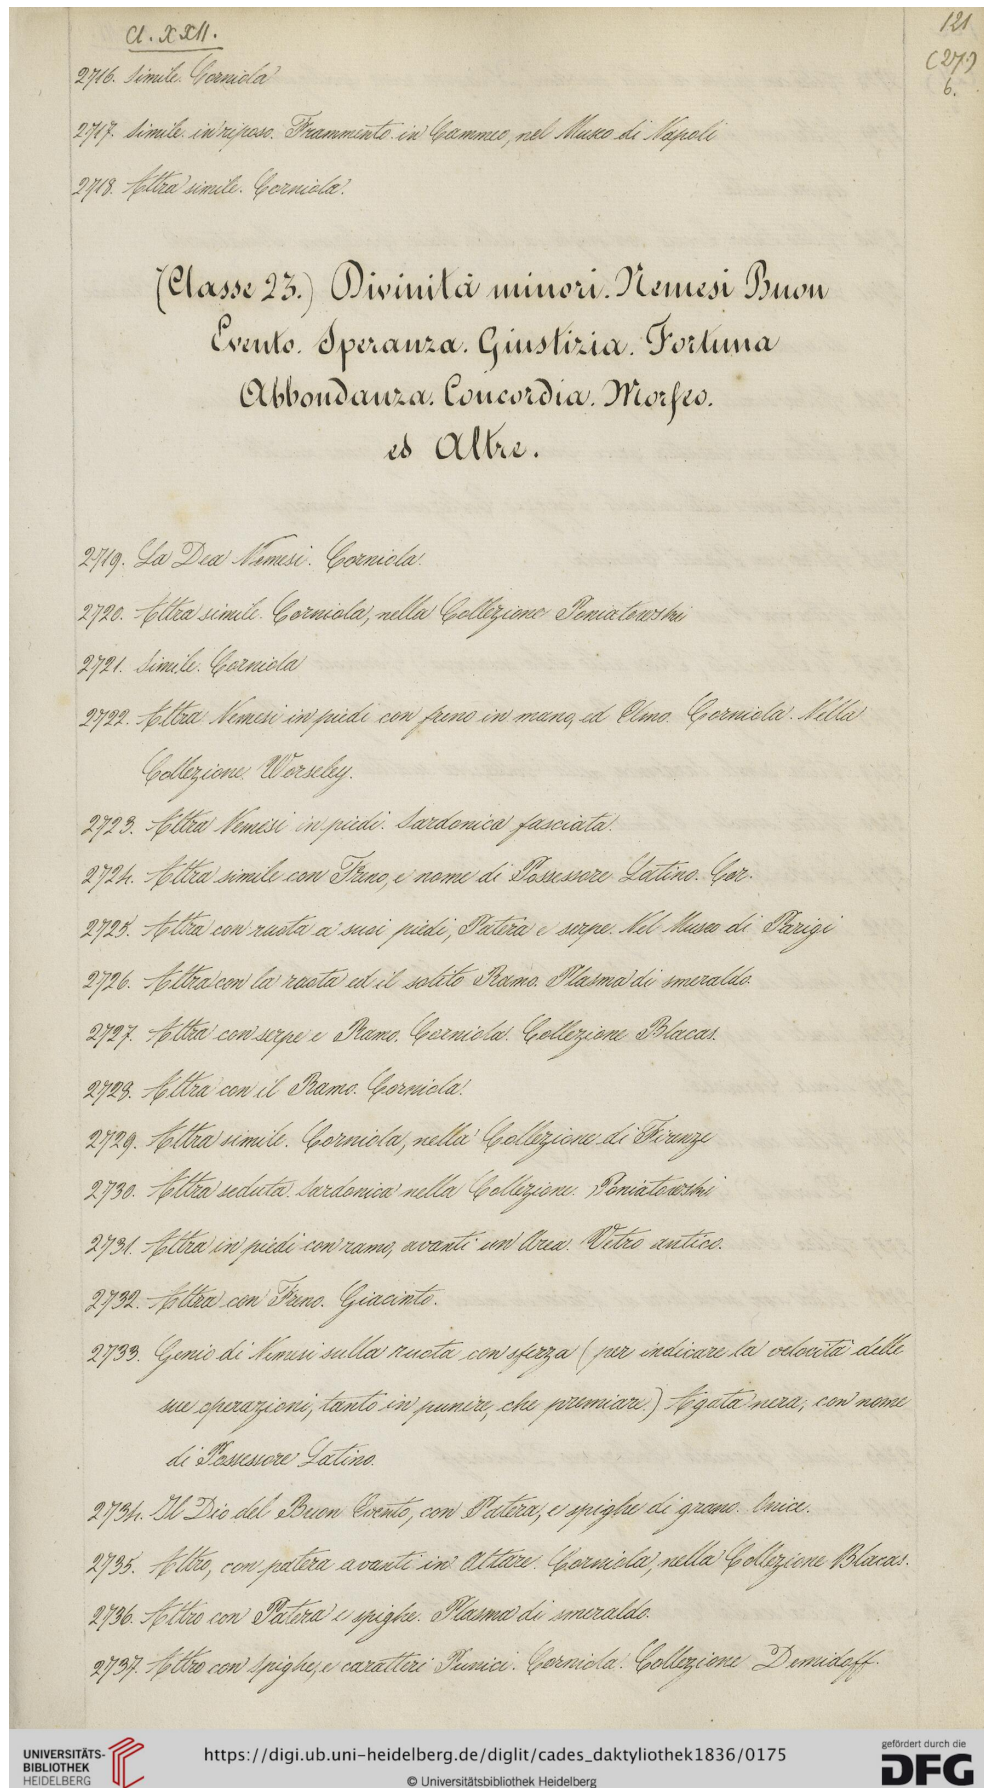 Cl. XXII.
121
(27.)
6.
2716. Simile. Corniola
2717. Simile in riposo. Frammento in Cammeo, nel Museo di Napoli
2718. Altra simile. Corniola.
(Classe 23.) Divinità minori. Nemesi Buon
Evento. Speranza. Giustizia. Fortuna
Abbondanza. Concordia. Morfeo.
ed Altre.
2719. La Dea Nemesi. Corniola.
2720. Altra simile. Corniola, nella Collezione Poniatowski
2721. Simile. Corniola
2722. Altra Nemesi in piedi con freno in mano, ed Olmo. Corniola. Nella
Collezione Worseley.
2723. Altra Nemesi in piedi. Sardonica fasciata.
2724. Altra simile con Freno, e nome di Possessore Latino. Cor.
2725. Altra con ruota a' suoi piedi, Patera e serpe. Nel Museo di Parigi
2726. Altra con la ruota ed il solito Ramo. Plasma di smeraldo.
2727. Altra con serpe e Ramo. Corniola. Collezione Blacas.
2728. Altra con il Ramo. Corniola.
2729. Altra simile. Corniola, nella Collezione di Firenze
2730. Altra seduta. Sardonica nella Collezione Poniatowski
2731. Altra in piedi con ramo, avanti un' Area. Vetro antico.
2732. Altra con Freno. Giacinto.
2733. Genio di Nemesi sulla ruota con sferza (per indicare la velocità delle
sue operazioni, tanto in punire, che premiare.) Agata nera, con nome
di Possessore Latino.
2734. Il Dio del Buon Evento, con Patera, e spighe di grano. Onice.
2735. Altro, con patera avanti un Altare. Corniola, nella Collezione Blacas.
2736. Altro con Patera e spighe. Plasma di smeraldo.
2737. Altro con Spighe, e caratteri Punici. Corniola. Collezione Demidoff.
UNIVERSITÄTS-
BIBLIOTHEK
HEIDELBERG
https://digi.ub.uni-heidelberg.de/diglit/cades_daktyliothek1836/0175
© Universitätsbibliothek Heidelberg
gefördert durch die
DFG